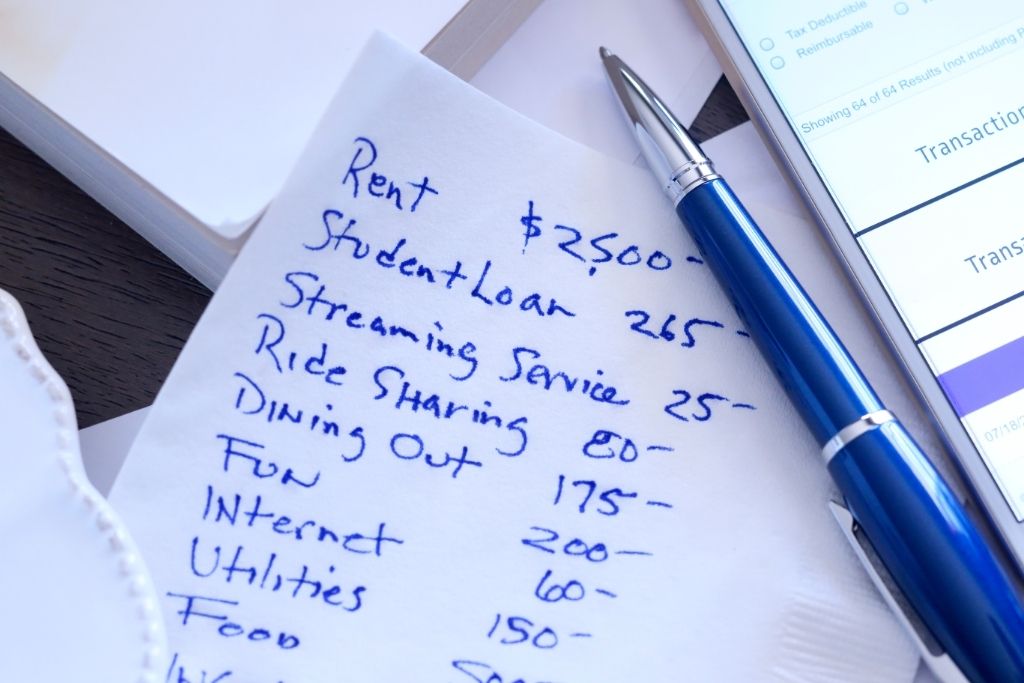 Rent $2,500-
Student Loan 265-
Streaming Service 25-
Ride Sharing 80-
Dining Out 175-
Fun 200-
Internet 60-
Utilities 150-
Food
Tax Deductible
Reimbursable
Showing 64 of 64 Results (not including
Transaction
Transa
07/18/